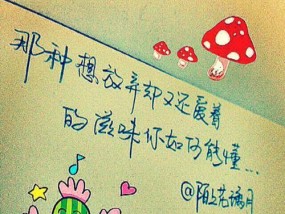 那种想放弃却又还爱着
的滋味你如何能懂...
@陌上花满月